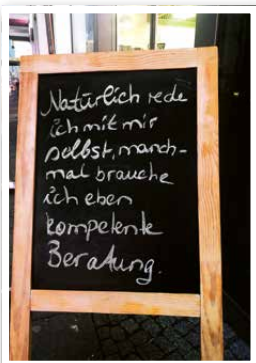 Natürlich rede
ich mit mir
selbst, manch-
mal brauche
ich eben
kompetente
Beratung.